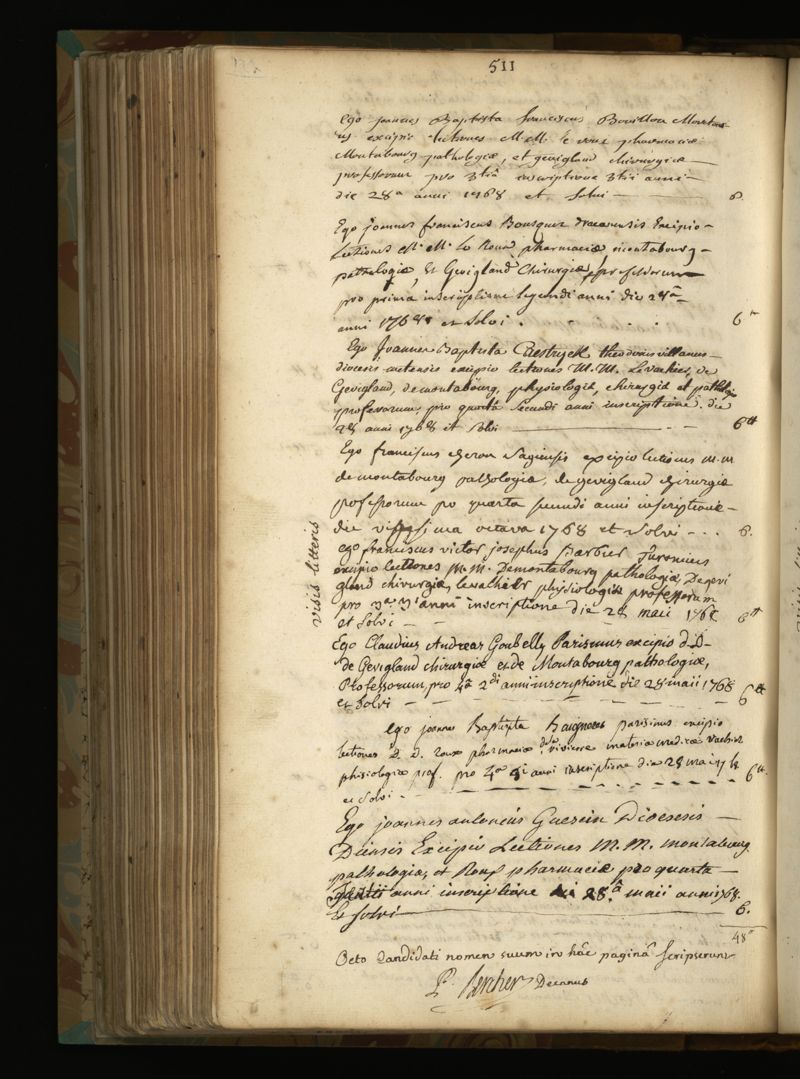 511
Ego joannes Baptista franciscus Bouillon
excipio lectiones M.M. le roux pharmaciæ
Montabourg pathologiæ, et gevigland chirurgiæ
professorum pro 3tiâ inscriptione 3tii anni
die 28a anni 1768 et solvi 6.
Ego joannes franciscus Bousquet excipio
Lectiones M. M. Le Roux pharmaciæ, montabourg
pathologiæ, Et Gevigland Chirurgiæ, professorum
pro prima inscriptione secundi anni die 28â
anni 1768 et solvi. 6tt
Ego Joannes Baptista theodonisvillanus
diocesis metensis excipio lectiones M.M. Levacher, de
Gevigland, de montabourg, physiologiæ, chirurgiæ et pathologiæ
professorum, pro quartâ secundi anni inscriptione. die
28 anni 1768 et solvi 6tt
Ego franciscus Sagiensis excipio lectiones m.m
de montabourg pathologiæ, de gevigland chirurgiæ
professorum pro quarta secundi anni inscriptione
die vigesima octava 1768 et solvi 6.
visis litteris
ego franciscus victor josephus Barbier
excipio lectiones M.M. Demontabourg pathologiæ, Degevi
gland chirurgiæ, levacher physiologiæ professorum
pro 3a 3i anni inscriptione die 28 maii 1768
et solvi 6tt
Ego Claudius Andreas Goubelly Parisinus excipio d.D.
de Gevigland chirurgiæ et de Montabourg pathologiæ,
Professorum, pro 4a 2di anni inscriptione die 28 maii 1768
et solvi 6tt
ego joannes Baptista parisinus excipio
lectiones D. D. roux pharmaciæ materiæ medicæ vacher
phisiologiæ prof. pro 4a anni inscriptione die 28 maii
et solvi 6tt.
Ego joannes antonius Guerin Dioesesis
Diensis Excipio Lectiones M.M. montabourg
pathologiæ, et Roux pharmaciæ pro quarta
anni inscriptione 28â maii anni 1768.
Et solvi 6.
48tt
Octo Candidati nomen suum in hâc paginâ scripserunt
P. Bercher Decanus